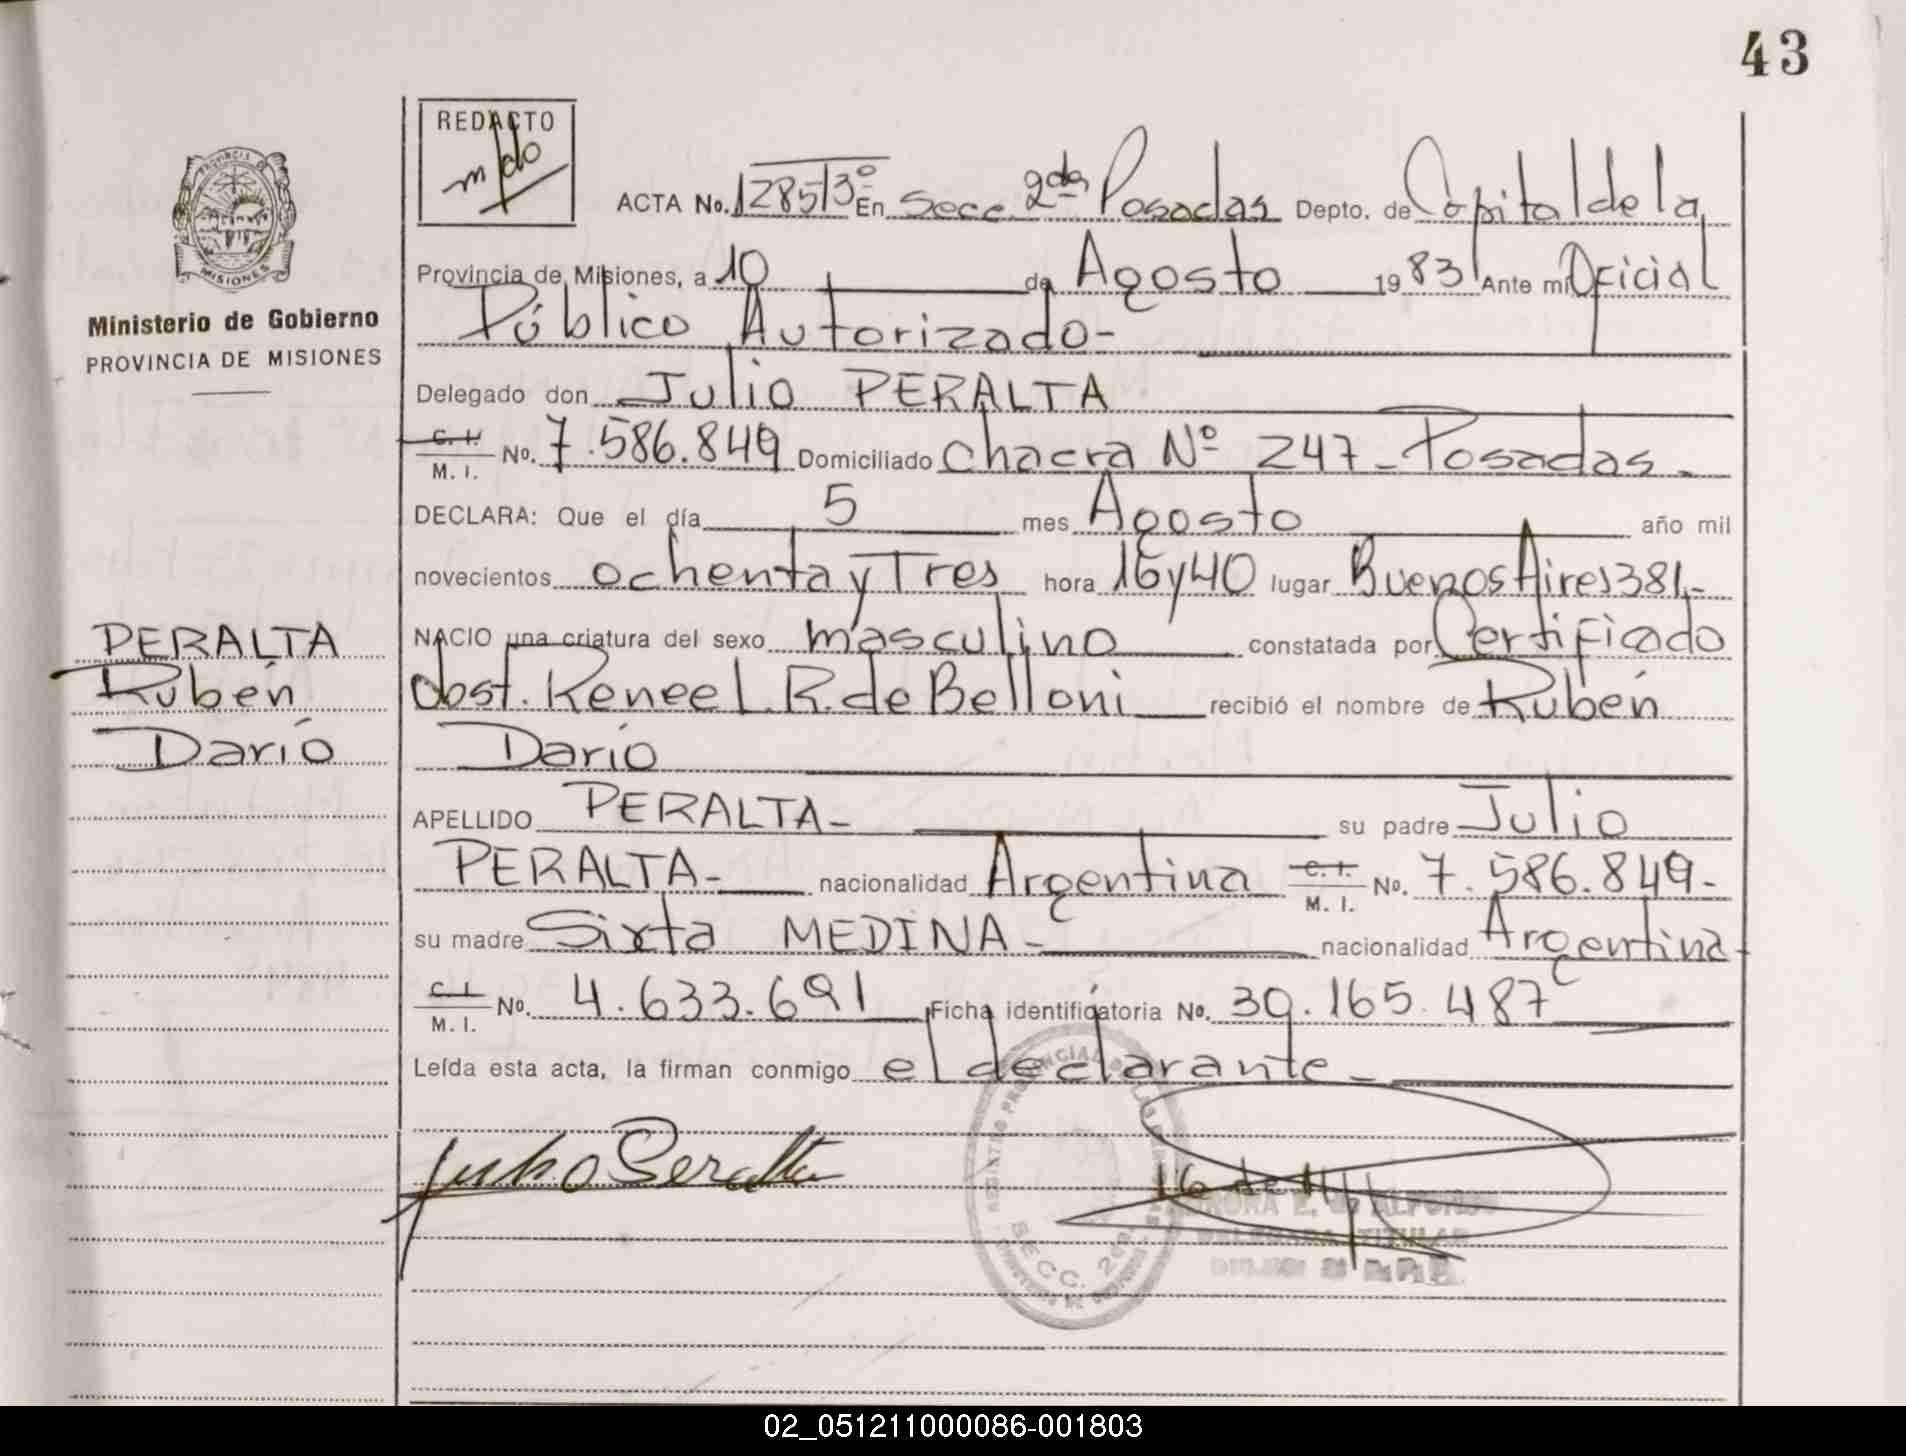 43
REDACTO
PROVINCIA DE
MISIONES
Ministerio de Gobierno
PROVINCIA DE MISIONES
ACTA No. 1285/3º En Secc. 2da Posadas Depto. de Capital de la
Provincia de Misiones, a 10 de Agosto 1983 Ante mi Oficial
Público Autorizado-
Delegado don Julio PERALTA
C. I. M. I. No. 7.586.849 Domiciliado chacra Nº 247 - Posadas-
DECLARA: Que el día 5 mes Agosto año mil
novecientos ochenta y Tres hora 16 y 40 lugar Buenos Aires 381,-
NACIO una criatura del sexo masculino constatada por Certificado
obst. Renee L. R. de Belloni recibió el nombre de Rubén
Darío
PERALTA
Rubén
Darío
APELLIDO PERALTA- su padre Julio
PERALTA- nacionalidad Argentina C. I. M. I. No. 7.586.849-
su madre Sixta MEDINA- nacionalidad Argentina-
C. I. M. I. No. 4.633.691 Ficha identificatoria No. 30.165.487
Leída esta acta, la firman conmigo el declarante-
Julio Peralta
SECC. 2da.
ALFONSO
DELEGADA TITULAR
02_051211000086-001803